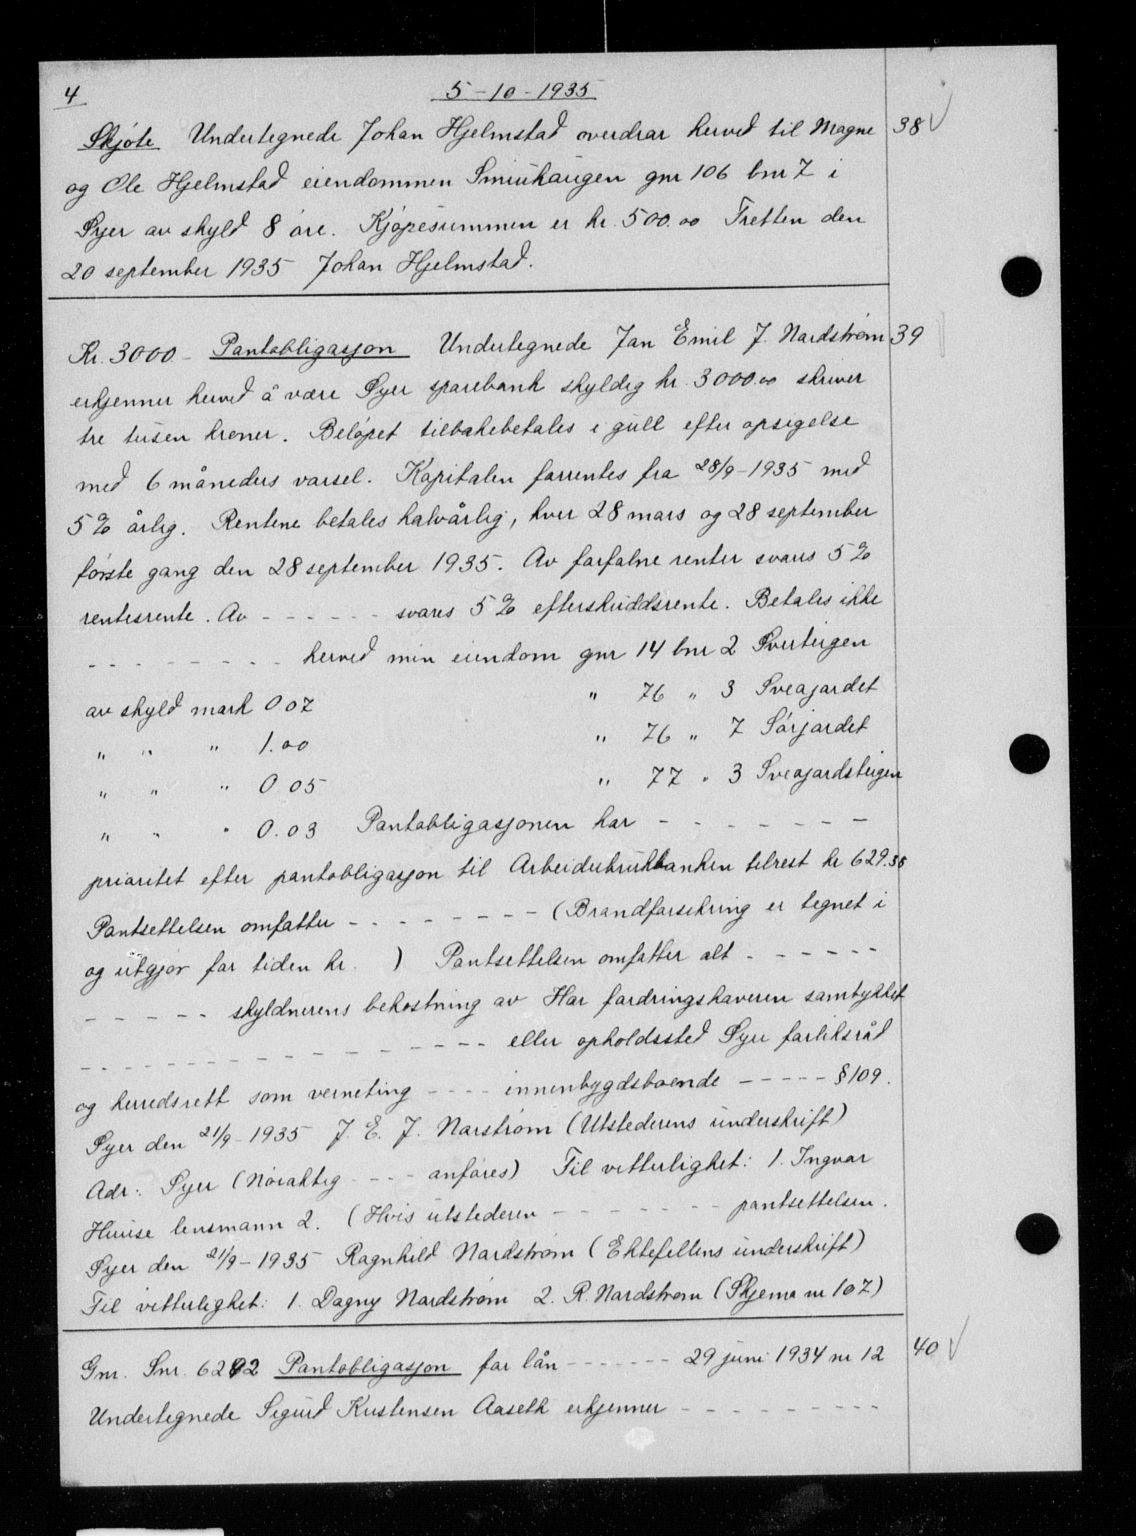 4
5-10-1935
Skjøte Undertegnede Johan Hjelmstad overdrar herved til Magne 38
og Ole Hjelmstad eiendommen Smiuhaugen gnr 106 bnr 7 i
Øyer av skyld 8 øre. Kjøpesummen er kr. 500.00 Tretten den
20 september 1935 Johan Hjelmstad.
Kr. 3000 - Pantobligasjon Undertegnede Jan Emil J. Nordstrøm 39
erkjenner herved å være Øyer sparebank skyldig kr. 3000.00 skriver
tre tusen kroner. Beløpet tilbakebetales i gull efter opsigelse
med 6 måneders varsel. Kapitalen forrentes fra 28/9-1935 med
5% årlig. Rentene betales halvårlig, hver 28 mars og 28 september
første gang den 28 september 1935. Av forfalne renter svares 5%
rentesrente. Av - - - - - - svares 5% efterskuddsrente. Betales ikke
- - - - - - - - herved min eiendom gnr 14 bnr 2 Sverteigen
av skyld mark 0 07 " 76 " 3 Sveajordet
" " " 1.00 " 76 " 7 Sørjordet
" " " 0 05 " 77 " 3 Sveajordsteigen
" " " 0.03 Pantobligasjonen har - - - - - - -
prioritet efter pantobligasjon til Arbeiderbrukbanken tilrest kr 629.38
Pantsettelsen omfatter - - - - - - - - (Brandforsikring er tegnet i
og utgjør for tiden kr. ) Pantsettelsen omfatter alt - - - - - -
- - - - - skyldnerens bekostning av Har fordringshaveren samtykket
- - - - - - - - - - - - - - eller opholdssted Øyer forliksråd
og herredsrett som verneting - - - - innenbygdsboende - - - - - § 109.
Øyer den 21/9-1935 J. E. J. Narstrøm (Utstederens underskrift)
Adr: Øyer (Nøiaktig - - - - anføres) Til vitterlighet: 1. Ingvar
Huuse lensmann 2. (Hvis utstederen - - - - - - - - pantsettelsen.
Øyer den 21/9-1935 Ragnhild Nordstrøm (Ektefellens underskrift)
Til vitterlighet: 1. Dagny Nordstrøm 2. R. Nordstrøm (Skjema nr 107)
Gnr. Snr. 6292 Pantobligasjon for lån - - - - - - - 29 juni 1934 nr 12 40
Undertegnede Sigurd Kristensen Aaseth erkjenner - - - - - - - - - -